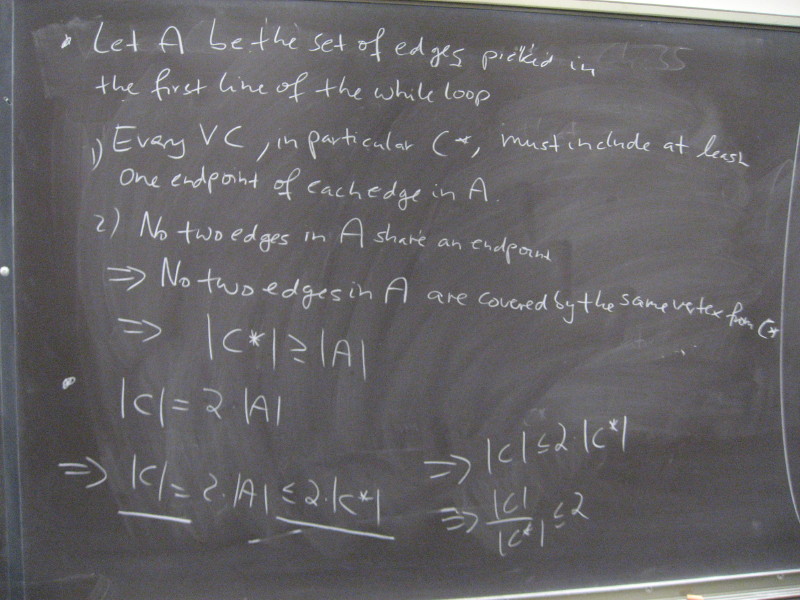 • Let A be the set of edges picked in
the first line of the while loop
1) Every VC, in particular C*, must include at least
one endpoint of each edge in A.
2) No two edges in A share an endpoint
⇒ No two edges in A are covered by the same vertex from C*
⇒ |C*| ≥ |A|
• |C| = 2·|A|
⇒ |C| = 2·|A| ≤ 2·|C*|
⇒ |C| ≤ 2·|C*|
⇒ |C| / |C*| ≤ 2